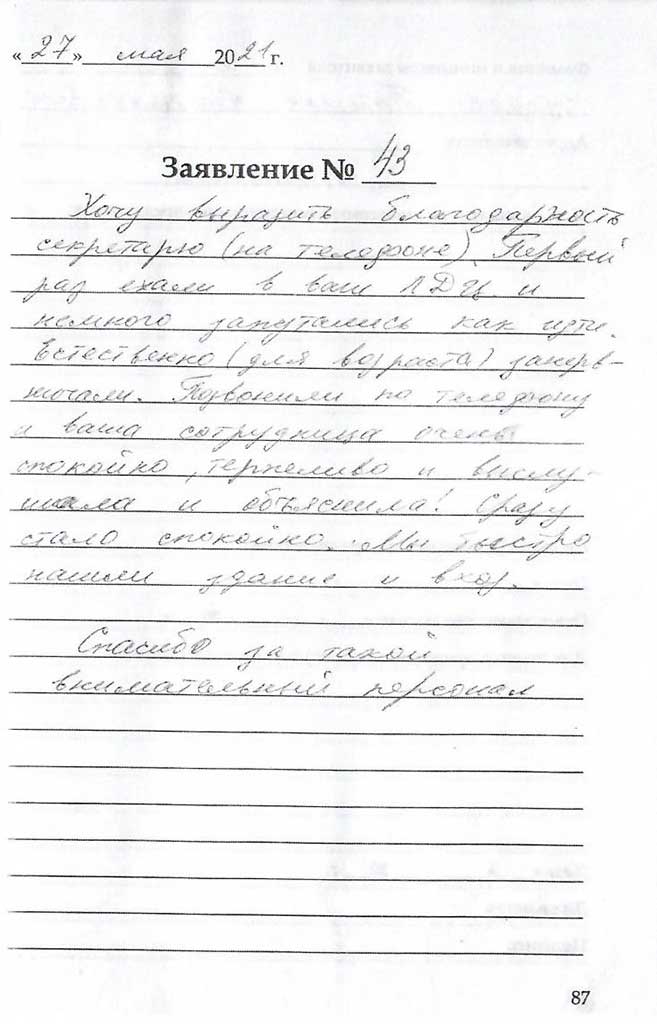 «27» мая 2021 г.
Заявление № 43
Хочу выразить благодарность
секретарю (на телефоне). Первый
раз ехали в ваш ЛДЦ и
немного запутались как идти.
Естественно (для возраста) занерв-
ничали. Позвонили по телефону
и ваша сотрудница очень
спокойно, терпеливо и выслу-
шала и объяснила! Сразу
стало спокойно. Мы быстро
нашли здание и вход.
Спасибо за такой
внимательный персонал
87